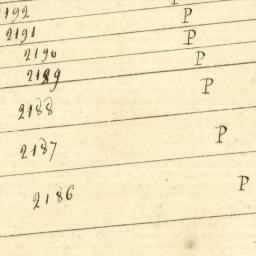 2192 P
2191 P
2190 P
2189 P
2188 P
2187 P
2186 P